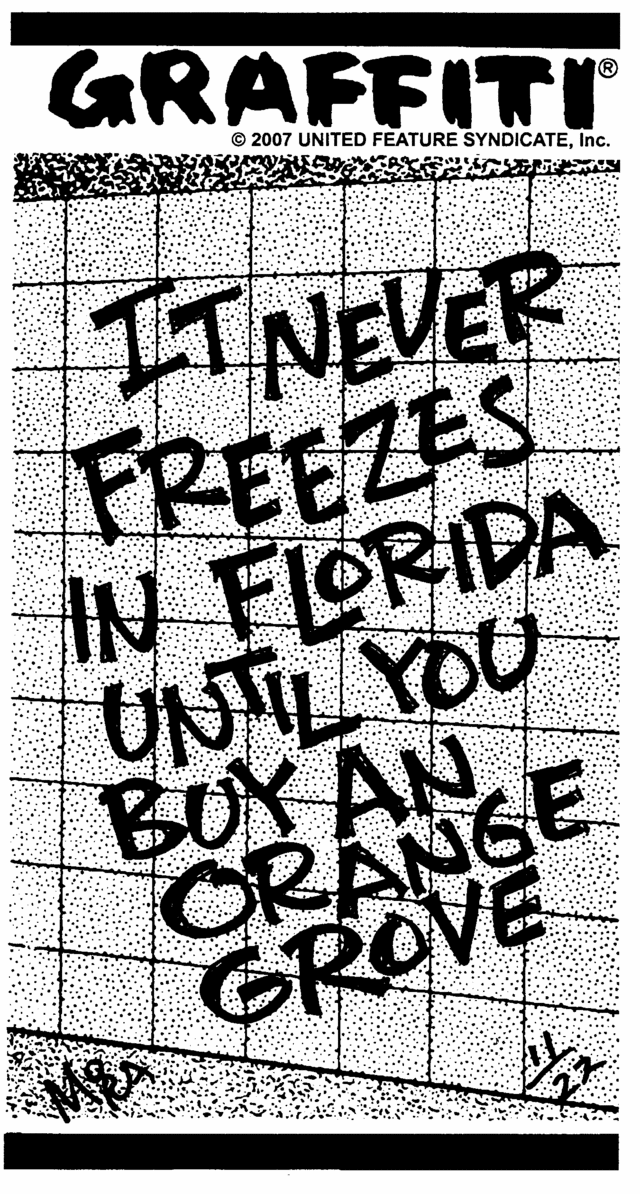 GRAFFITI®
© 2007 UNITED FEATURE SYNDICATE, Inc.
IT NEVER
FREEZES
IN FLORIDA
UNTIL YOU
BUY AN
ORANGE
GROVE
MORA
11/22